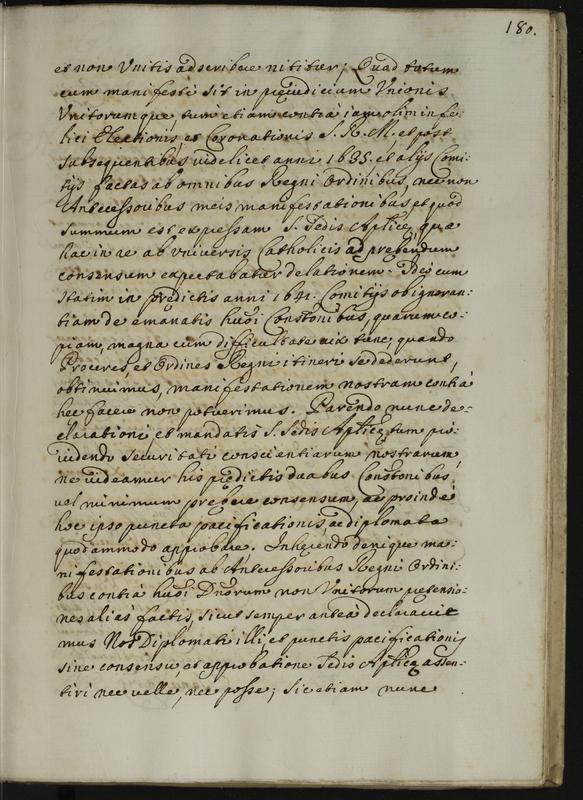 180.
et non Unitis adscribere nititur; Quod totum
cum manifestè sit in prejudicium Unionis
Unitorumque, tum etiam contrà iam olim in fe-
lici Electionis, et Coronationis S. R. M. et post
subsequentibus videlicet anni 1635. et alijs Comi-
tijs factas ab omnibus Regni Ordinibus, nec non
Antecessoribus meis manifestationibus, et quod
summum est expressam S. Sedis Aplicę, quę
hac in re ab universis Catholicis ad prębendum
consensum expectabatur delationem. Ideo cum
statim in prędictis anni 1641. Comitijs ob ignoran-
tiam de emanatis huōi Constōnibus, quarum co-
piam, magna cum difficultate vix tunc, quando
Proceres, et Ordines Regni itineri se dederunt,
obtinuimus, manifestationem nostram contrà
hęc facere non potuerimus. Parendo nunc de-
clarationi et mandatis S. Sedis Aplicę, tum pro-
videndo securitati conscientiarum nostrarum,
ne videamur his prędictis duabus Constōnibus,
vel minimum prębere consensum, ac proindè
hoc ipso puncta pacificationis, ac diplomata
quodammodo approbare. Inherendo denique ma-
nifestationibus ab Antecessoribus Regni Ordini-
bus contrà huōi Dnōrum non Unitorum pretensio-
nes aliàs factis, sicut semper anteà declaravi
mus Nos Diplomati illi, et punctis pacificationis
sine consensu, et approbatione Sedis Aplicę assen-
tiri nec velle, nec posse; sic etiam nunc